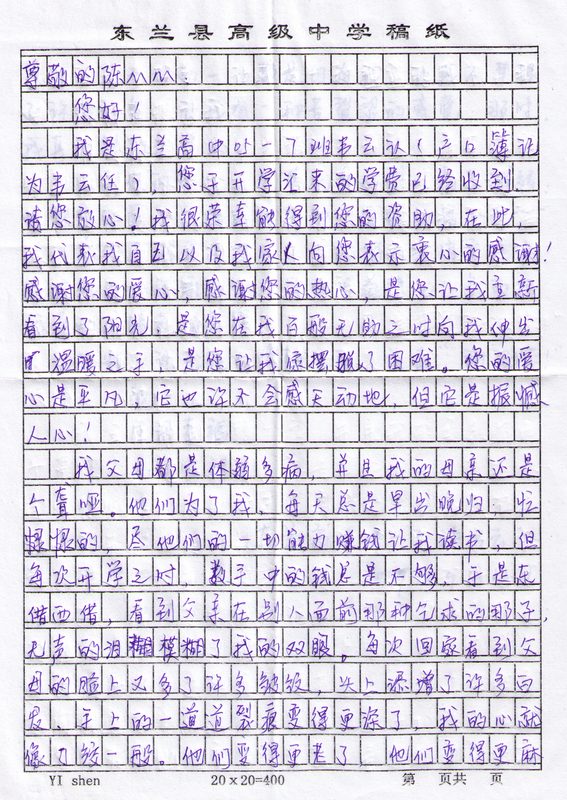 东兰县高级中学稿纸
尊敬的陈
您好！
我是东兰高中 一 班韦云认（户口簿记
为韦云任），您于开学汇来的学费已经收到，
请您放心！我很荣幸能得到您的资助，在此，
我代表我自己以及我家人向您表示衷心的感谢！
感谢您的爱心，感谢您的热心，是您让我重新
看到了阳光，是您在我百般无助之时向我伸出
温暖之手，是您让我摆脱了困难。您的爱
心是平凡，它也许不会感天动地，但它是振憾
人心！
我父母都是体弱多病，并且我的母亲还是
个聋哑。他们为了我，每天总是早出晚归，忙
忙的，尽他们的一切能力赚钱让我读书，但
每次开学之时，数手中的钱总是不够，于是东
借西借，看到父亲在别人面前那种乞求的那子，
无声的泪糊模糊了我的双眼。每次回家看到父
母的脸上又多了许多皱纹，头上添增了许多白
发，手上的一道道裂痕变得更深了，我的心就
像刀绞一般。他们变得更老了，他们变得更麻
YI shen 20×20=400 第 页共 页